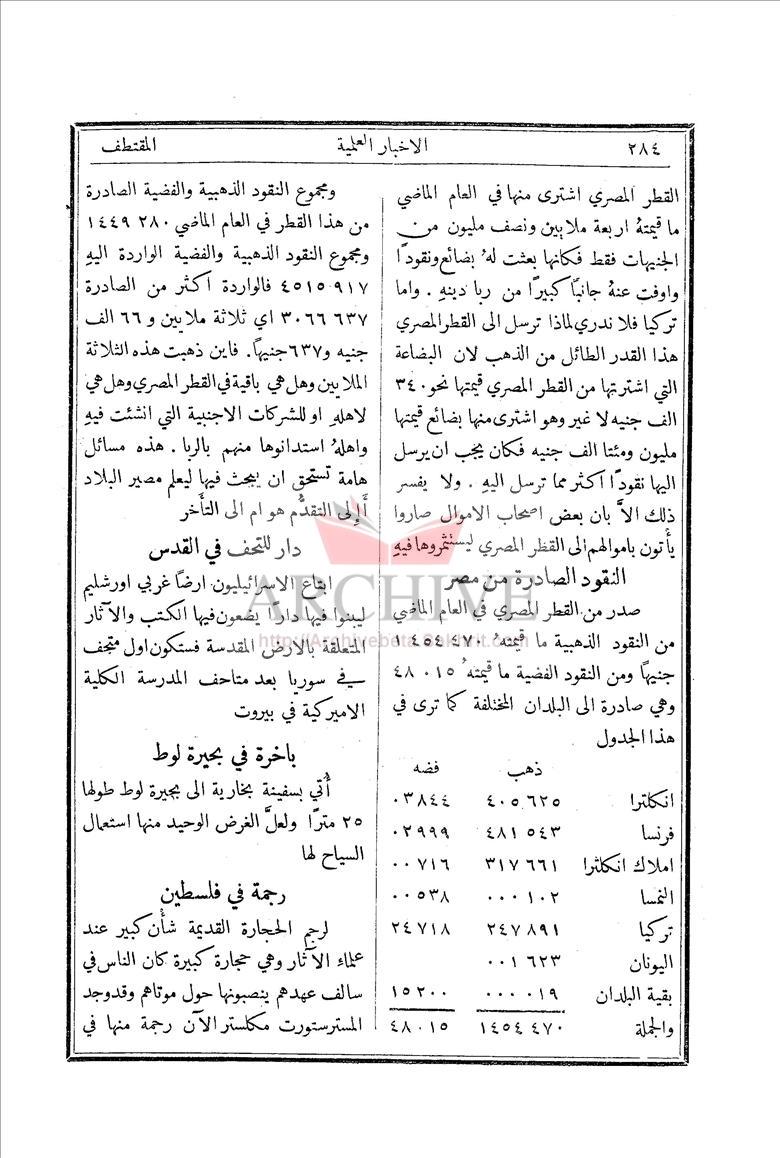 ٢٨٤
الاخبار العلمية
المقتطف
القطر المصري اشترى منها في العام الماضي
ما قيمتهُ اربعة ملايين ونصف مليون من
الجنيهات فقط فكانها بعثت لهُ بضائع ونقودًا
واوفت عنهُ جانبًا كبيرًا من ربا دينهِ . واما
تركيا فلا ندري لماذا ترسل الى القطر المصري
هذا القدر الطائل من الذهب لان البضاعة
التي اشترتها من القطر المصري قيمتها نحو ٣٤٠
الف جنيه لا غير وهو اشترى منها بضائع قيمتها
مليون ومئتا الف جنيه فكان يجب ان يرسل
اليها نقودًا اكثر مما ترسل اليهِ . ولا يفسر
ذلك الاَّ بان بعض اصحاب الاموال صاروا
يأتون باموالهم الى القطر المصري ليستثمروها فيهِ
النقود الصادرة من مصر
صدر من القطر المصري في العام الماضي
من النقود الذهبية ما قيمتهُ ٤٧٠ ١٤٥٤
جنيهًا ومن النقود الفضية ما قيمتهُ ٠١٥ ٤٨
وهي صادرة الى البلدان المختلفة كما ترى في
هذا الجدول
ذهب فضه
انكلترا ٤٠٥٦٢٥ ٠٣٨٤٤
فرنسا ٤٨١٥٤٣ ٠٢٩٩٩
املاك انكلترا ٣١٧٦٦١ ٠٠٧١٦
النمسا ٠٠٠١٠٢ ٠٠٥٣٨
تركيا ٢٤٧٨٩١ ٢٤٧١٨
اليونان ٠٠١٦٢٣
بقية البلدان ٠٠٠٠١٩ ١٥٢٠٠
والجملة ١٤٥٤٤٧٠ ٤٨٠١٥
ومجموع النقود الذهبية والفضية الصادرة
من هذا القطر في العام الماضي ٢٨٠ ١٤٤٩
ومجموع النقود الذهبية والفضية الواردة اليهِ
٤٥١٥٩١٧ فالواردة اكثر من الصادرة
٦٣٧ ٣٠٦٦ اي ثلاثة ملايين و ٦٦ الف
جنيه و٦٣٧ جنيهًا. فاين ذهبت هذه الثلاثة
الملايين وهل هي باقية في القطر المصري وهل هي
لاهلهِ او للشركات الاجنبية التي انشئت فيهِ
واهلهُ استدانوها منهم بالربا . هذه مسائل
هامة تستحق ان يبحث فيها ليعلم مصير البلاد
أَإِلى التقدُّم هو ام الى التأخر
دار للتحف في القدس
ابتاع الاسرائيليون ارضًا غربي اورشليم
ليبنوا فيها دارًا يضعون فيها الكتب والآثار
المتعلقة بالارض المقدسة فستكون اول متحف
في سوريا بعد متاحف المدرسة الكلية
الاميركية في بيروت
باخرة في بحيرة لوط
أُتي بسفينة بخارية الى بحيرة لوط طولها
٢٥ مترًا ولعلَّ الغرض الوحيد منها استعمال
السياح لها
رجمة في فلسطين
لرجم الحجارة القديمة شأن كبير عند
علماء الآثار وهي حجارة كبيرة كان الناس في
سالف عهدهم ينصبونها حول موتاهم وقد وجد
المستر ستورت مكلستر الآن رجمة منها في
ARCHIVE